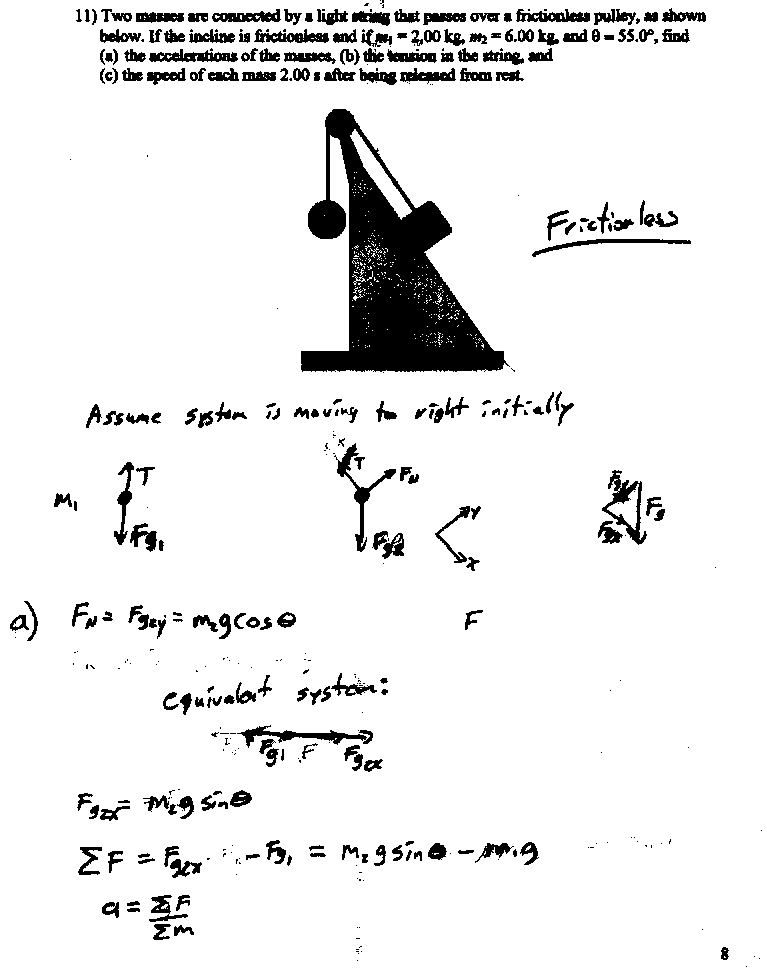 11) Two masses are connected by a light string that passes over a frictionless pulley, as shown
below. If the incline is frictionless and if m₁ = 2.00 kg, m₂ = 6.00 kg, and θ = 55.0°, find
(a) the accelerations of the masses, (b) the tension in the string, and
(c) the speed of each mass 2.00 s after being released from rest.
Frictionless
Assume system is moving to right initially
M₁ T Fg₁
T F_N Fg2 Y X
Fg Fgx
a) F_N = Fg2y = m₂gcosθ F
equivalent system:
Fg1 F Fg2x
Fg2x = m₂g sinθ
ΣF = Fg2x - Fg₁ = m₂gsinθ - m₁g
a = ΣF
Σm
8